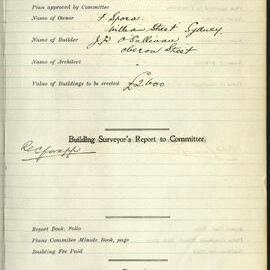 Plan approved by Committee
Name of Owner
William Street Sydney
Name of Builder J. O'Sullivan
Oberon Street
Name of Architect
Value of Buildings to be erected £2600
Building Surveyor's Report to Committee.
Report Book, Folio
Plans Committee Minute Book, page
Building Fee Paid